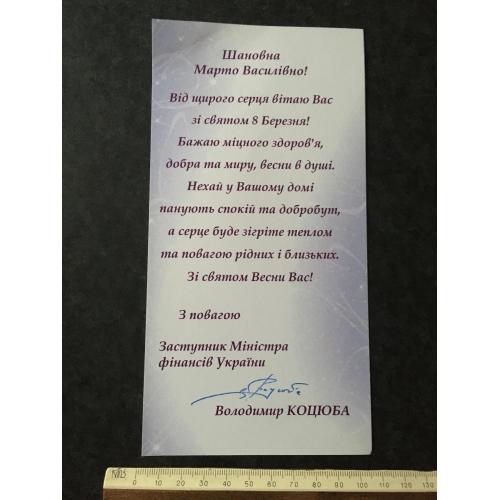 Шановна
Марто Василівно!
Від щирого серця вітаю Вас
зі святом 8 Березня!
Бажаю міцного здоров'я,
добра та миру, весни в душі.
Нехай у Вашому домі
панують спокій та добробут,
а серце буде зігріте теплом
та повагою рідних і близьких.
Зі святом Весни Вас!
З повагою
Заступник Міністра
фінансів України
Володимир КОЦЮБА
10 20 30 40 50 60 70 80 90 100 110 120 130